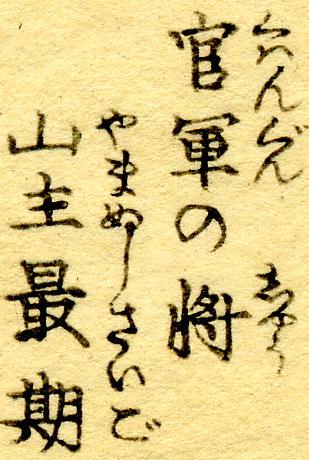 官軍の将
くわんぐん
しやう
山主最期
やまぬしさいご